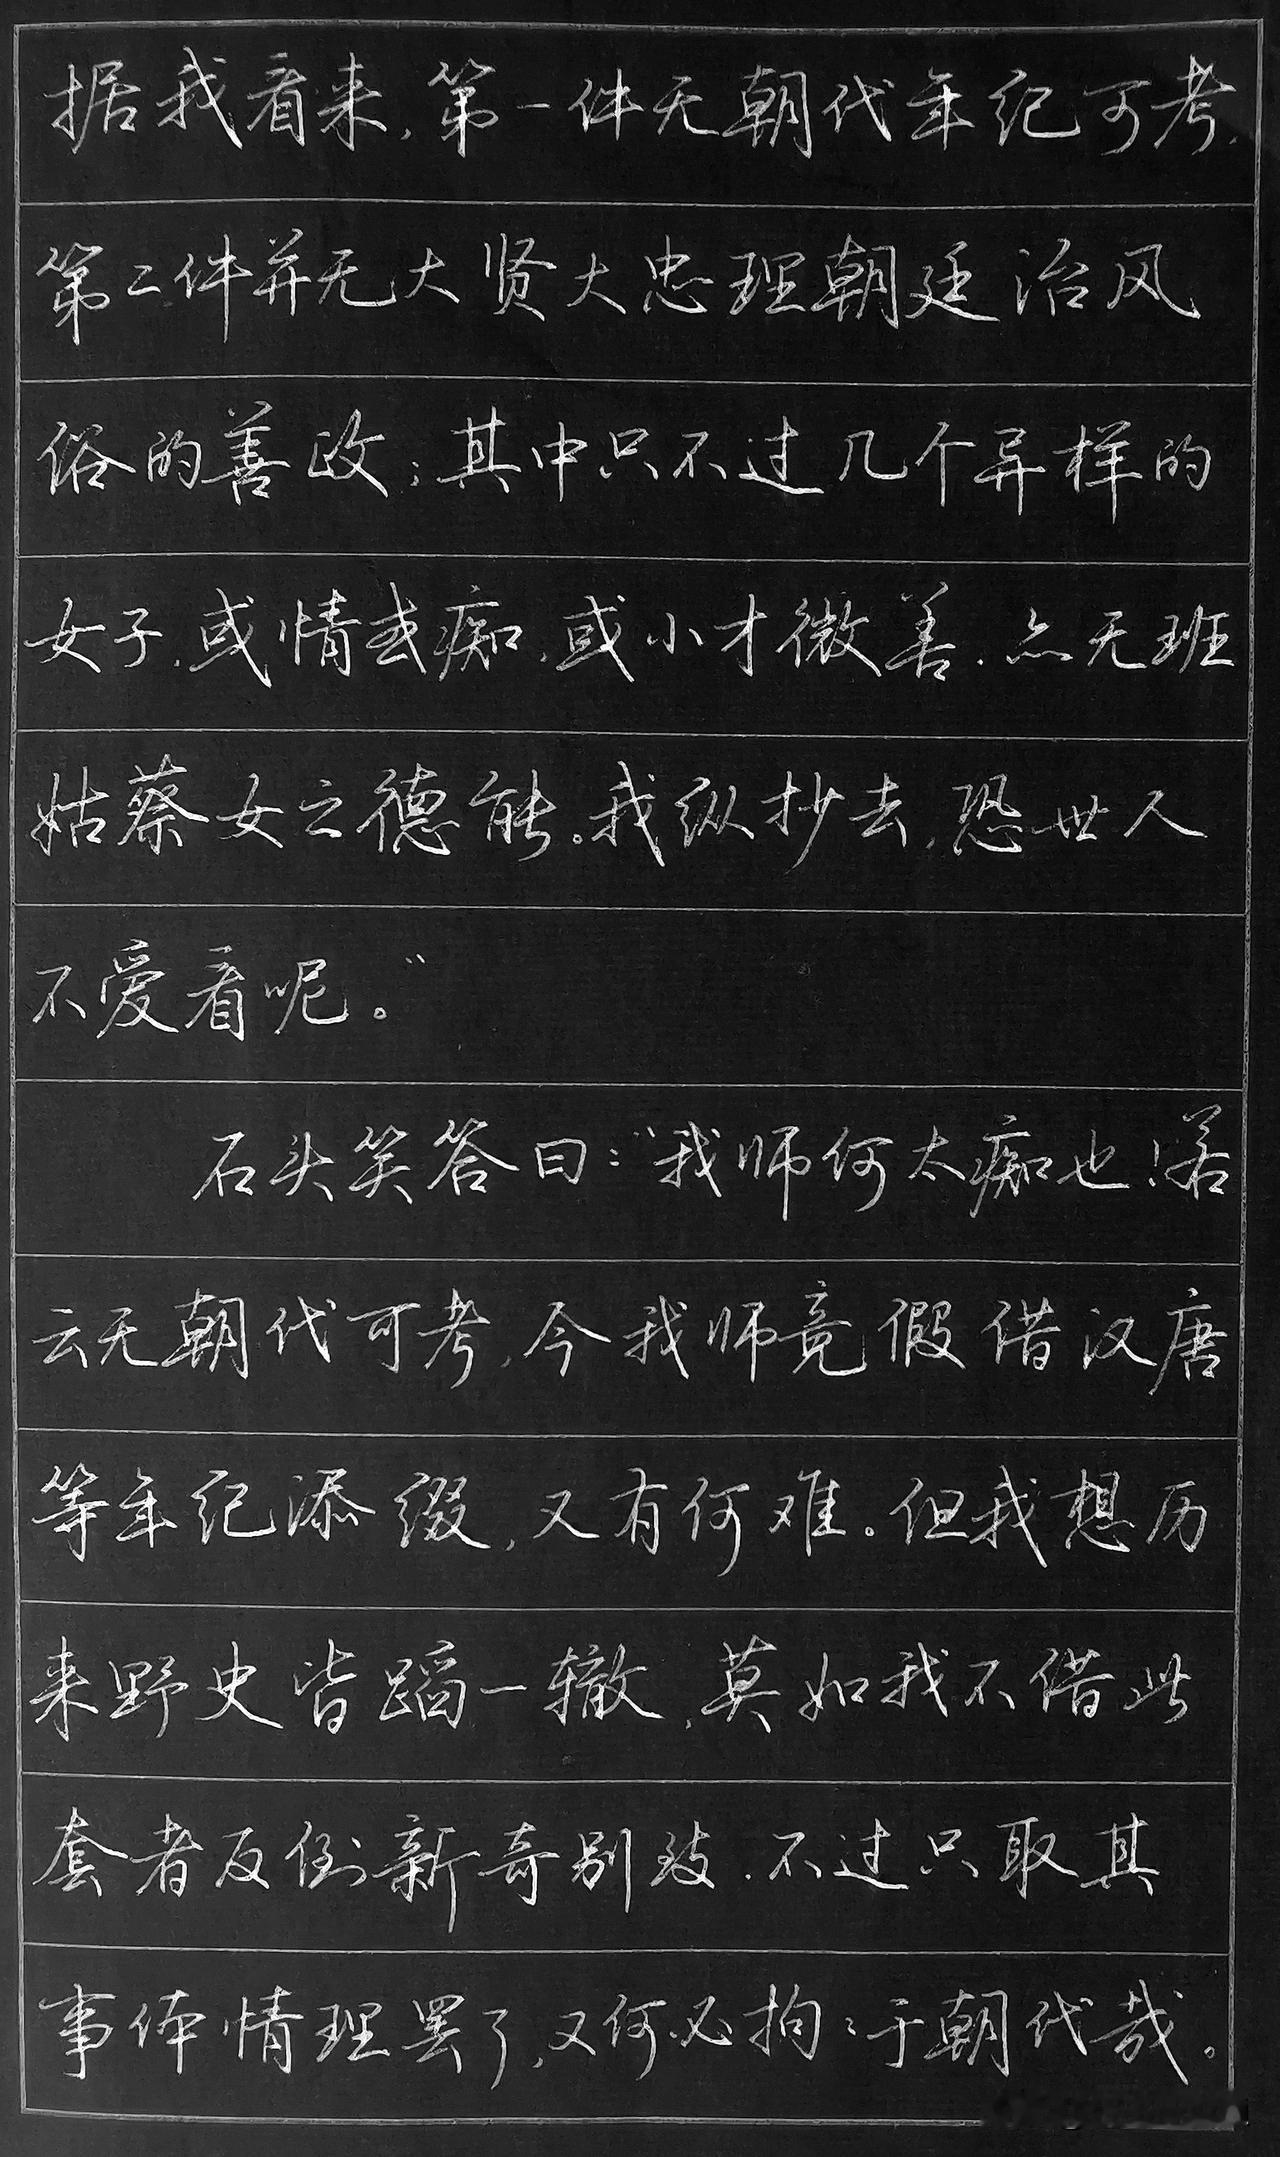 据我看来,第一件无朝代年纪可考,
第二件并无大贤大忠理朝廷治风
俗的善政;其中只不过几个异样的
女子,或情或痴,或小才微善,亦无班
姑蔡女之德能。我纵抄去,恐世人
不爱看呢。”
石头笑答曰:“我师何太痴也!若
云无朝代可考,今我师竟假借汉唐
等年纪添缀,又有何难。但我想历
来野史皆蹈一辙,莫如我不借此
套者反倒新奇别致,不过只取其
事体情理罢了,又何必拘:于朝代哉。